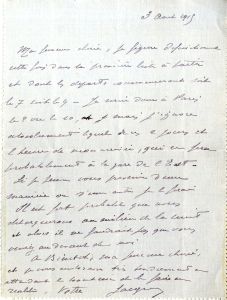 3 Août 1915
Ma femme chérie, je
cette fois dans la première liste à partir
et dont les départs commenceront soit
le 7 soit le 9 - Je serai donc à Paris
le 8 ou le 10, mais j'ignore
absolument lequel de ces 2 jours et
l'heure de mon arrivée, qui se fera
probablement à la gare de l'Est.
Si je peux vous prévenir d'une
manière ou d'une autre je le ferai
Il est fort probable que nous
débarquerons au milieu de la nuit
et alors il ne faudrait pas que vous
veniez au devant de moi
A Bientôt, ma femme chérie,
et je vous embrasse bien tendrement en
attendant le bonheur de le faire en
réalité. Votre Jacques